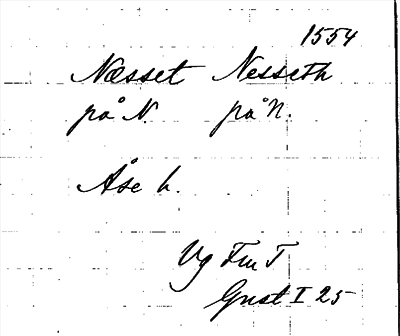 1554
Næsset Nesseth
på N. på N.
Åse h.
Vg Fm T
Gnst I 25